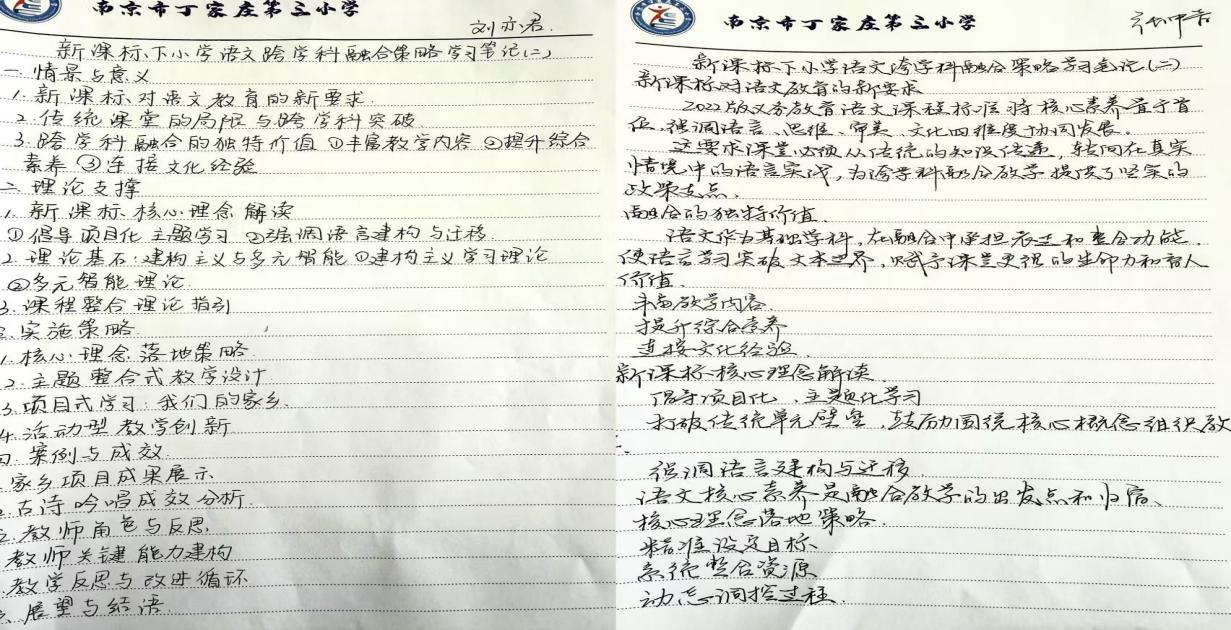 南京市丁家庄第三小学
刘亦君.
新课标下小学语文跨学科融合策略学习笔记(二)
一 情景与意义
1. 新课标对语文教育的新要求.
2 传统课堂的局限与跨学科突破
3.跨学科融合的独特价值 ①丰富教学内容 ②提升综合
素养 ③连接文化经验
二 理论支撑
1. 新课标核心理念解读
①倡导项目化 主题学习 ②强调语言建构与迁移.
2. 理论基石:建构主义与多元智能 ①建构主义学习理论
②多元智能理论
3. 课程整合理论指引
三.实施策略
1.核心理念落地策略.
2. 主题整合式教学设计.
3.项目式学习:我们的家乡.
4.活动型教学创新
四. 案例与成效.
家乡项目成果展示
2.古诗吟唱成效分析.
五.教师角色与反思
教师关键能力建构
教学反思与改进循环
六、展望与结语.
南京市丁家庄第三小学
新课标下小学语文跨学科融合策略学习笔记(二)
新课标对语文教育的新要求
2022版义务教育语文课程标准将核心素养置于首
位,强调语言、思维、审美、文化四维度协同发展.
这要求课堂必须从传统的知识传递,转向在真实
情境中的语言实践,为跨学科融合教学提供了坚实的
政策支点.
融合的独特价值.
语文作为基础学科,在融合中承担表达和整合功能.
使语言学习突破文本世界,赋予课堂更强的生命力和育人
价值.
丰富教学内容.
提升综合素养
连接文化经验.
新课标核心理念解读.
倡导项目化、主题化学习
打破传统单元壁垒,鼓励围绕核心概念组织教
强调语言建构与迁移.
语文核心素养是融合教学的出发点和归宿、
核心理念落地策略.
精准设定目标、
系统整合资源
动态调控过程.